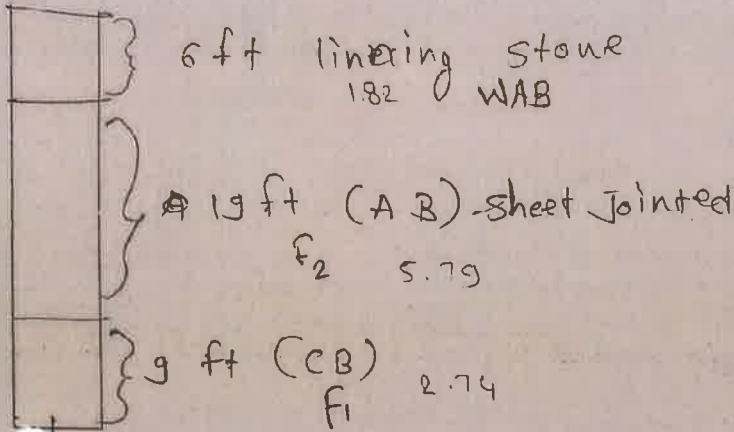 6 ft linering stone
1.82 WAB
19 ft (AB)-sheet Jointed
F2 5.79
9 ft (CB)
F1 2.74